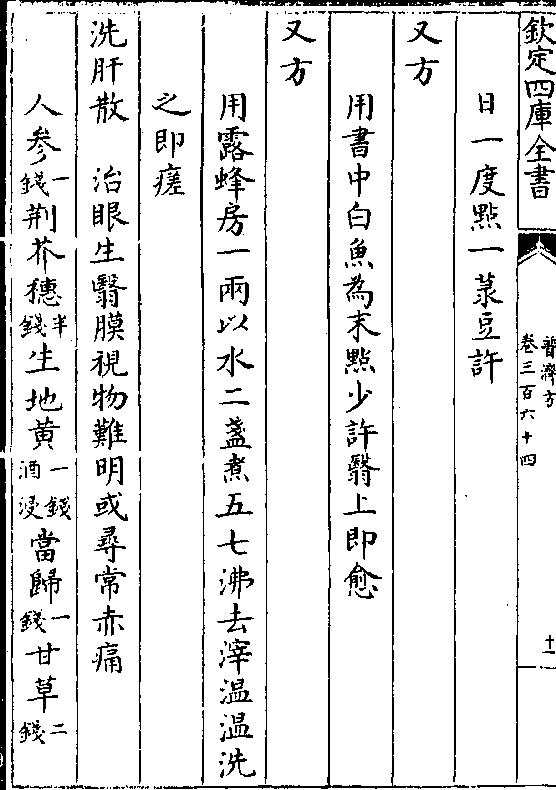 欽定四庫全書
普濟方
卷三百六十四
十一
日一度點一菉豆許
又方
用書中白魚為末點少許翳上即愈
又方
用露蜂房一兩以水二盞煮五七沸去滓温温洗
之即瘥
洗肝散　治眼生翳膜視物難明或尋常赤痛
人參一錢荆芥穗半錢生地黄一錢酒浸當歸一錢甘草二錢